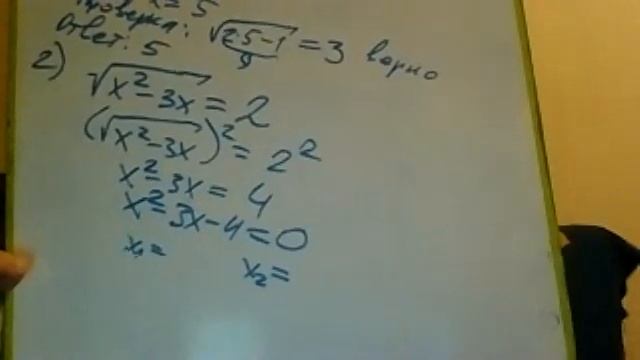 x = 5
Проверка: √(2·5-1) = 3 верно
9
Ответ: 5
2)
√(x² - 3x) = 2
(√(x² - 3x))² = 2²
x² - 3x = 4
x² - 3x - 4 = 0
x₁ = x₂ =